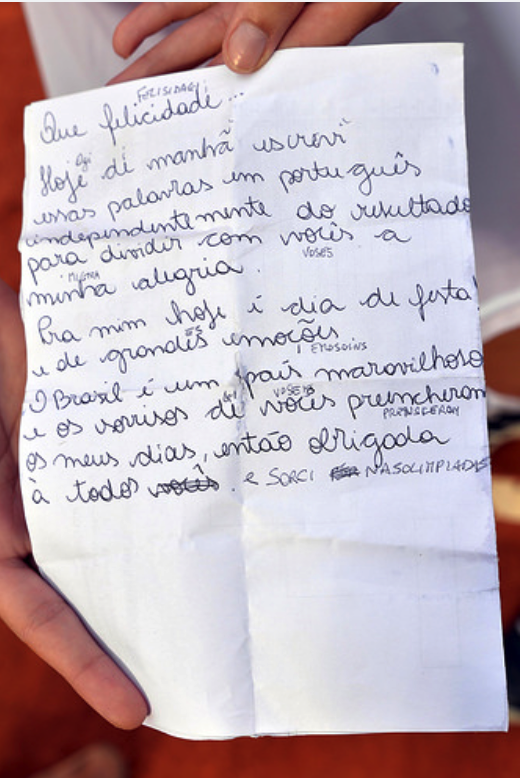 FELISIDAGI
Que felicidade...
Ogi
Hoje de manhã escrevi
essas palavras em português
independentemente do resultado
para dividir com vocês a
MIGNA VOSES
minha alegria.
Pra mim hoje é dia de festa!
ES
e de grandes emoções
EMOSOINS
O Brasil é um país maravilhoso
VOSEIS
e os sorrisos de vocês preencheram
PREINSCERAM
os meus dias, então obrigada
à todos vocês. e SORCI NAS OLIMPIADAS